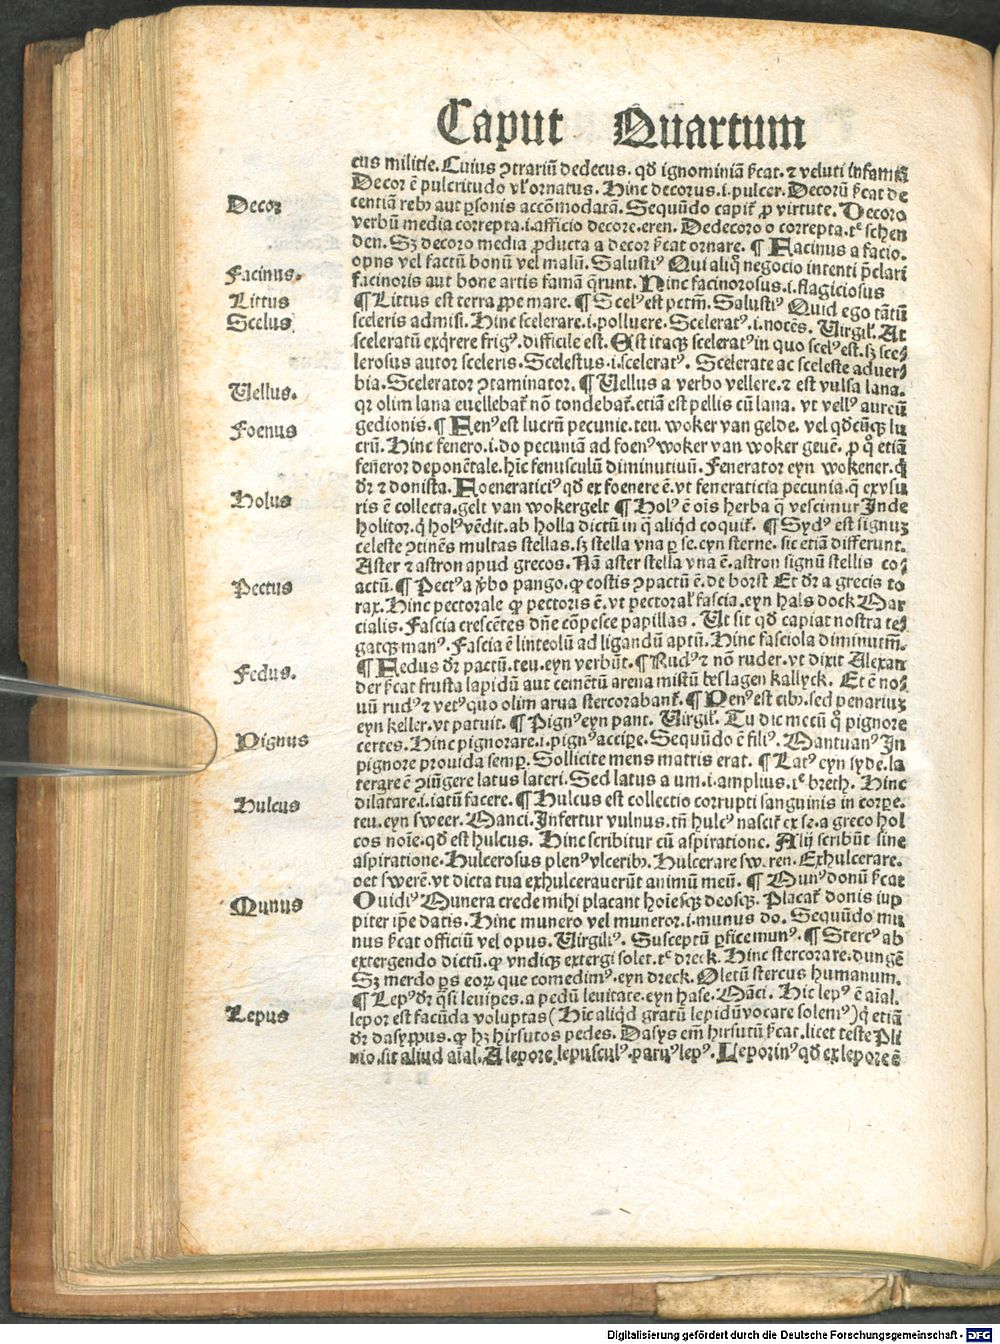 Caput Quartum
cus militie. Cuius ꝯtrariū dedecus. qd̄ ignominiā ſ̄cat. ⁊ veluti infamiā
Decor ē pulcritudo vl' ornatus. Hinc decorus .i. pulcer. Decorū ſ̄cat de
Decor
centiā rebꝰ aut ꝑsonis accōmodatā. Sequūdo capit᷑ ꝓ virtute. Decoro
verbū media correpta .i. afficio decore. eren. Dedecoro o correpta. tᵉ schen
den. Sꝫ decoro media ꝓducta a decor ſ̄cat ornare. ¶ Facinus a facio.
opus vel factū bonū vel malū. Salustiꝰ Qui aliqͦ negocio intenti p̄clari
Facinus.
facinoris aut bone artis famā q̄runt. Hinc facinorosus .i. flagiciosus
Littus
¶ Littus est terra ꝓpe mare. ¶ Scelꝰ est pctm̄. Salustiꝰ Quid ego tātū
Scelus
sceleris admisi. Hinc scelerare .i. polluere. Sceleratꝰ .i. nocēs. Virgil'. At
sceleratū exq̄rere frigꝰ. difficile est. Est itaqꝫ sceleratꝰ in quo scelꝰ est. sꝫ sce⸗
lerosus autor sceleris. Scelestus .i. sceleratꝰ. Scelerate ac sceleste adver⸗
bia. Scelerator ꝯtaminator. ¶ Vellus a verbo vellere. ⁊ est vulsa lana.
Vellus.
qꝛ olim lana euellebat᷑ nō tondebat᷑. etiā est pellis cū lana. vt vellꝰ aureū
gedionis. ¶ Fenꝰ est lucrū pecunie. teu. woker van gelde. vel qd̄cūqꝫ lu
Foenus
crū. Hinc fenero .i. do pecuniā ad foenꝰ woker van woker geuē. ꝓ qͦ etiā
feñeror deponētale. hīc fenusculū diminutiuū. Fenerator eyn wokener. q̇
dr̄ ⁊ donista. Foeneraticiꝰ qd̄ ex foenere ē. vt feneraticia pecunia. q̄ ex vsu
Holus
ris ē collecta. gelt van wokergelt ¶ Holꝰ ē oīs herba q̄ vescimur Inde
holitor. q̇ holꝰ vēdit. ab holla dictū in q̄ aliqd coquit᷑. ¶ Sydꝰ est signuꝫ
celeste ꝯtinēs multas stellas. sꝫ stella vna ꝑ se. eyn sterne. sic etiā differunt.
Aster ⁊ astron apud grecos. Nā aster stella vna ē. astron signū stellis co⸗
Pectus
actū. ¶ Pectꝰ a v̄bo pango. qꝫ costis ꝯpactū ē. de borst Et dr̄ a grecis to
rax. Hinc pectorale qꝫ pectoris ē. vt pectoral' fascia. eyn hals dock Mar
cialis. Fascia crescētes dn̄e cōpesce papillas. Ut sit qd̄ capiat nostra te⸗
gatqꝫ manꝰ. Fascia ē linteolū ad ligandū aptū. Hinc fasciola diminutm̄.
¶ Fedus dr̄ pactū. teu. eyn verbūt. ¶ Rudꝰ ⁊ nō ruder. vt dixit Alexan
Fedus.
der ſ̄cat frusta lapidū aut cemētū arena mistū beslagen kallyck. Et ē no⸗
uū rudꝰ ⁊ vetꝰ quo olim arua stercorabant᷑. ¶ Penꝰ est cibꝰ. sed penarius
eyn keller. vt patuit. ¶ Pignꝰ eyn pant. Virgil'. Tu dic mecū qͦ pignore
Pignus
certes. Hinc pignorare .i. pignꝰ accipe. Sequūdo ē filiꝰ. Mantuanꝰ In
pignore prouida semꝑ. Sollicite mens matris erat. ¶ Latꝰ eyn syde. la
terare ē ꝯiūgere latus lateri. Sed latus a um .i. amplius. tᵉ breth. Hinc
Hulcus
dilatare .i. latū facere. ¶ Hulcus est collectio corrupti sanguinis in corꝑe.
teu. eyn sweer. Manci. Infertur vulnus. tn̄ hulcꝰ nascit᷑ ex se. a greco hol
cos noīe. qd̄ est hulcus. Hinc scribitur cū aspiratione. Alij scribūt sine
aspiratione. Hulcerosus plenꝰ vlceribꝰ. Hulcerare sweren. Exhulcerare.
oet swerē. vt dicta tua exhulcerauerūt animū meū. ¶ Munꝰ donū ſ̄cat
Munus
Ouidiꝰ Munera crede mihi placant hoīesqꝫ deosqꝫ. Placat᷑ donis iup
piter ip̄e datis. Hinc munero vel muneror .i. munus do. Sequūdo mu
nus ſ̄cat officiū vel opus. Virgiliꝰ. Susceptū ꝑfice munꝰ. ¶ Stercꝰ ab
extergendo dictū. qꝫ vndiqꝫ extergi solet. tᵉ dreck. Hinc stercorare. dungē
Sꝫ merdo ps̄ eoꝝ que comedimꝰ. eyn dreck. Oletū stercus humanum.
¶ Lepꝰ dr̄ q̄si leuipes. a pedū leuitate. eyn hase. Māci. Hic lepꝰ ē aīal.
Lepus
lepor est facūda voluptas (Hic aliqd gratū lepidū vocare solemꝰ) q̇ etiā
dr̄ dasyppus. qꝫ hꝫ hirsutos pedes. Dasys em̄ hirsutū ſ̄cat. licet teste Pli
nio. sit aliud aīal. A lepore. lepusculꝰ. paruꝰ lepꝰ. Leporinꝰ qd̄ ex lepore ē
Digitalisierung gefördert durch die Deutsche Forschungsgemeinschaft - DFG